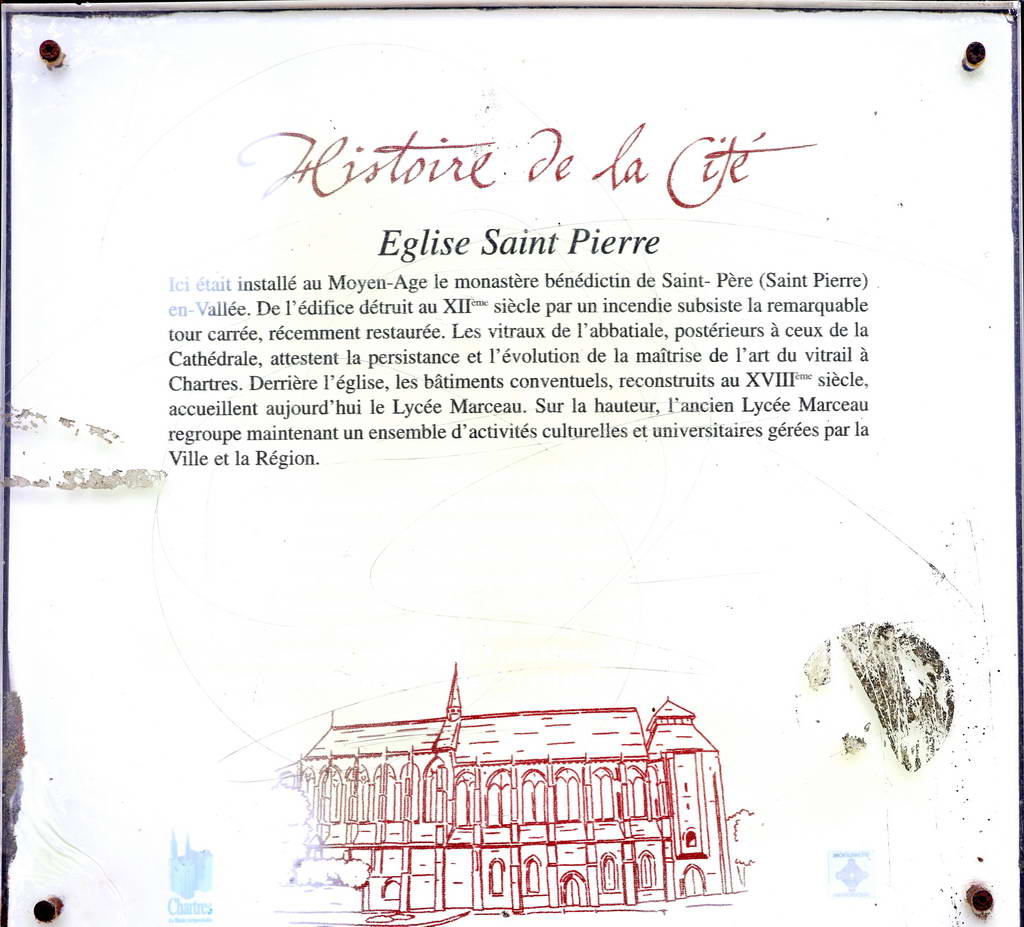 Histoire de la Cité
Eglise Saint Pierre
Ici était installé au Moyen-Age le monastère bénédictin de Saint- Père (Saint Pierre)
en-Vallée. De l'édifice détruit au XIIème siècle par un incendie subsiste la remarquable
tour carrée, récemment restaurée. Les vitraux de l'abbatiale, postérieurs à ceux de la
Cathédrale, attestent la persistance et l'évolution de la maîtrise de l'art du vitrail à
Chartres. Derrière l'église, les bâtiments conventuels, reconstruits au XVIIIème siècle,
accueillent aujourd'hui le Lycée Marceau. Sur la hauteur, l'ancien Lycée Marceau
regroupe maintenant un ensemble d'activités culturelles et universitaires gérées par la
Ville et la Région.
Chartres